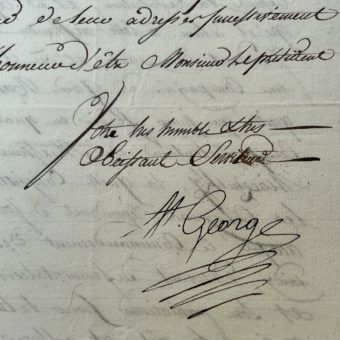 d de leur adresser successivement
d'être Monsieur le président
Votre très humble & très
Obeissant Serviteur
St. George